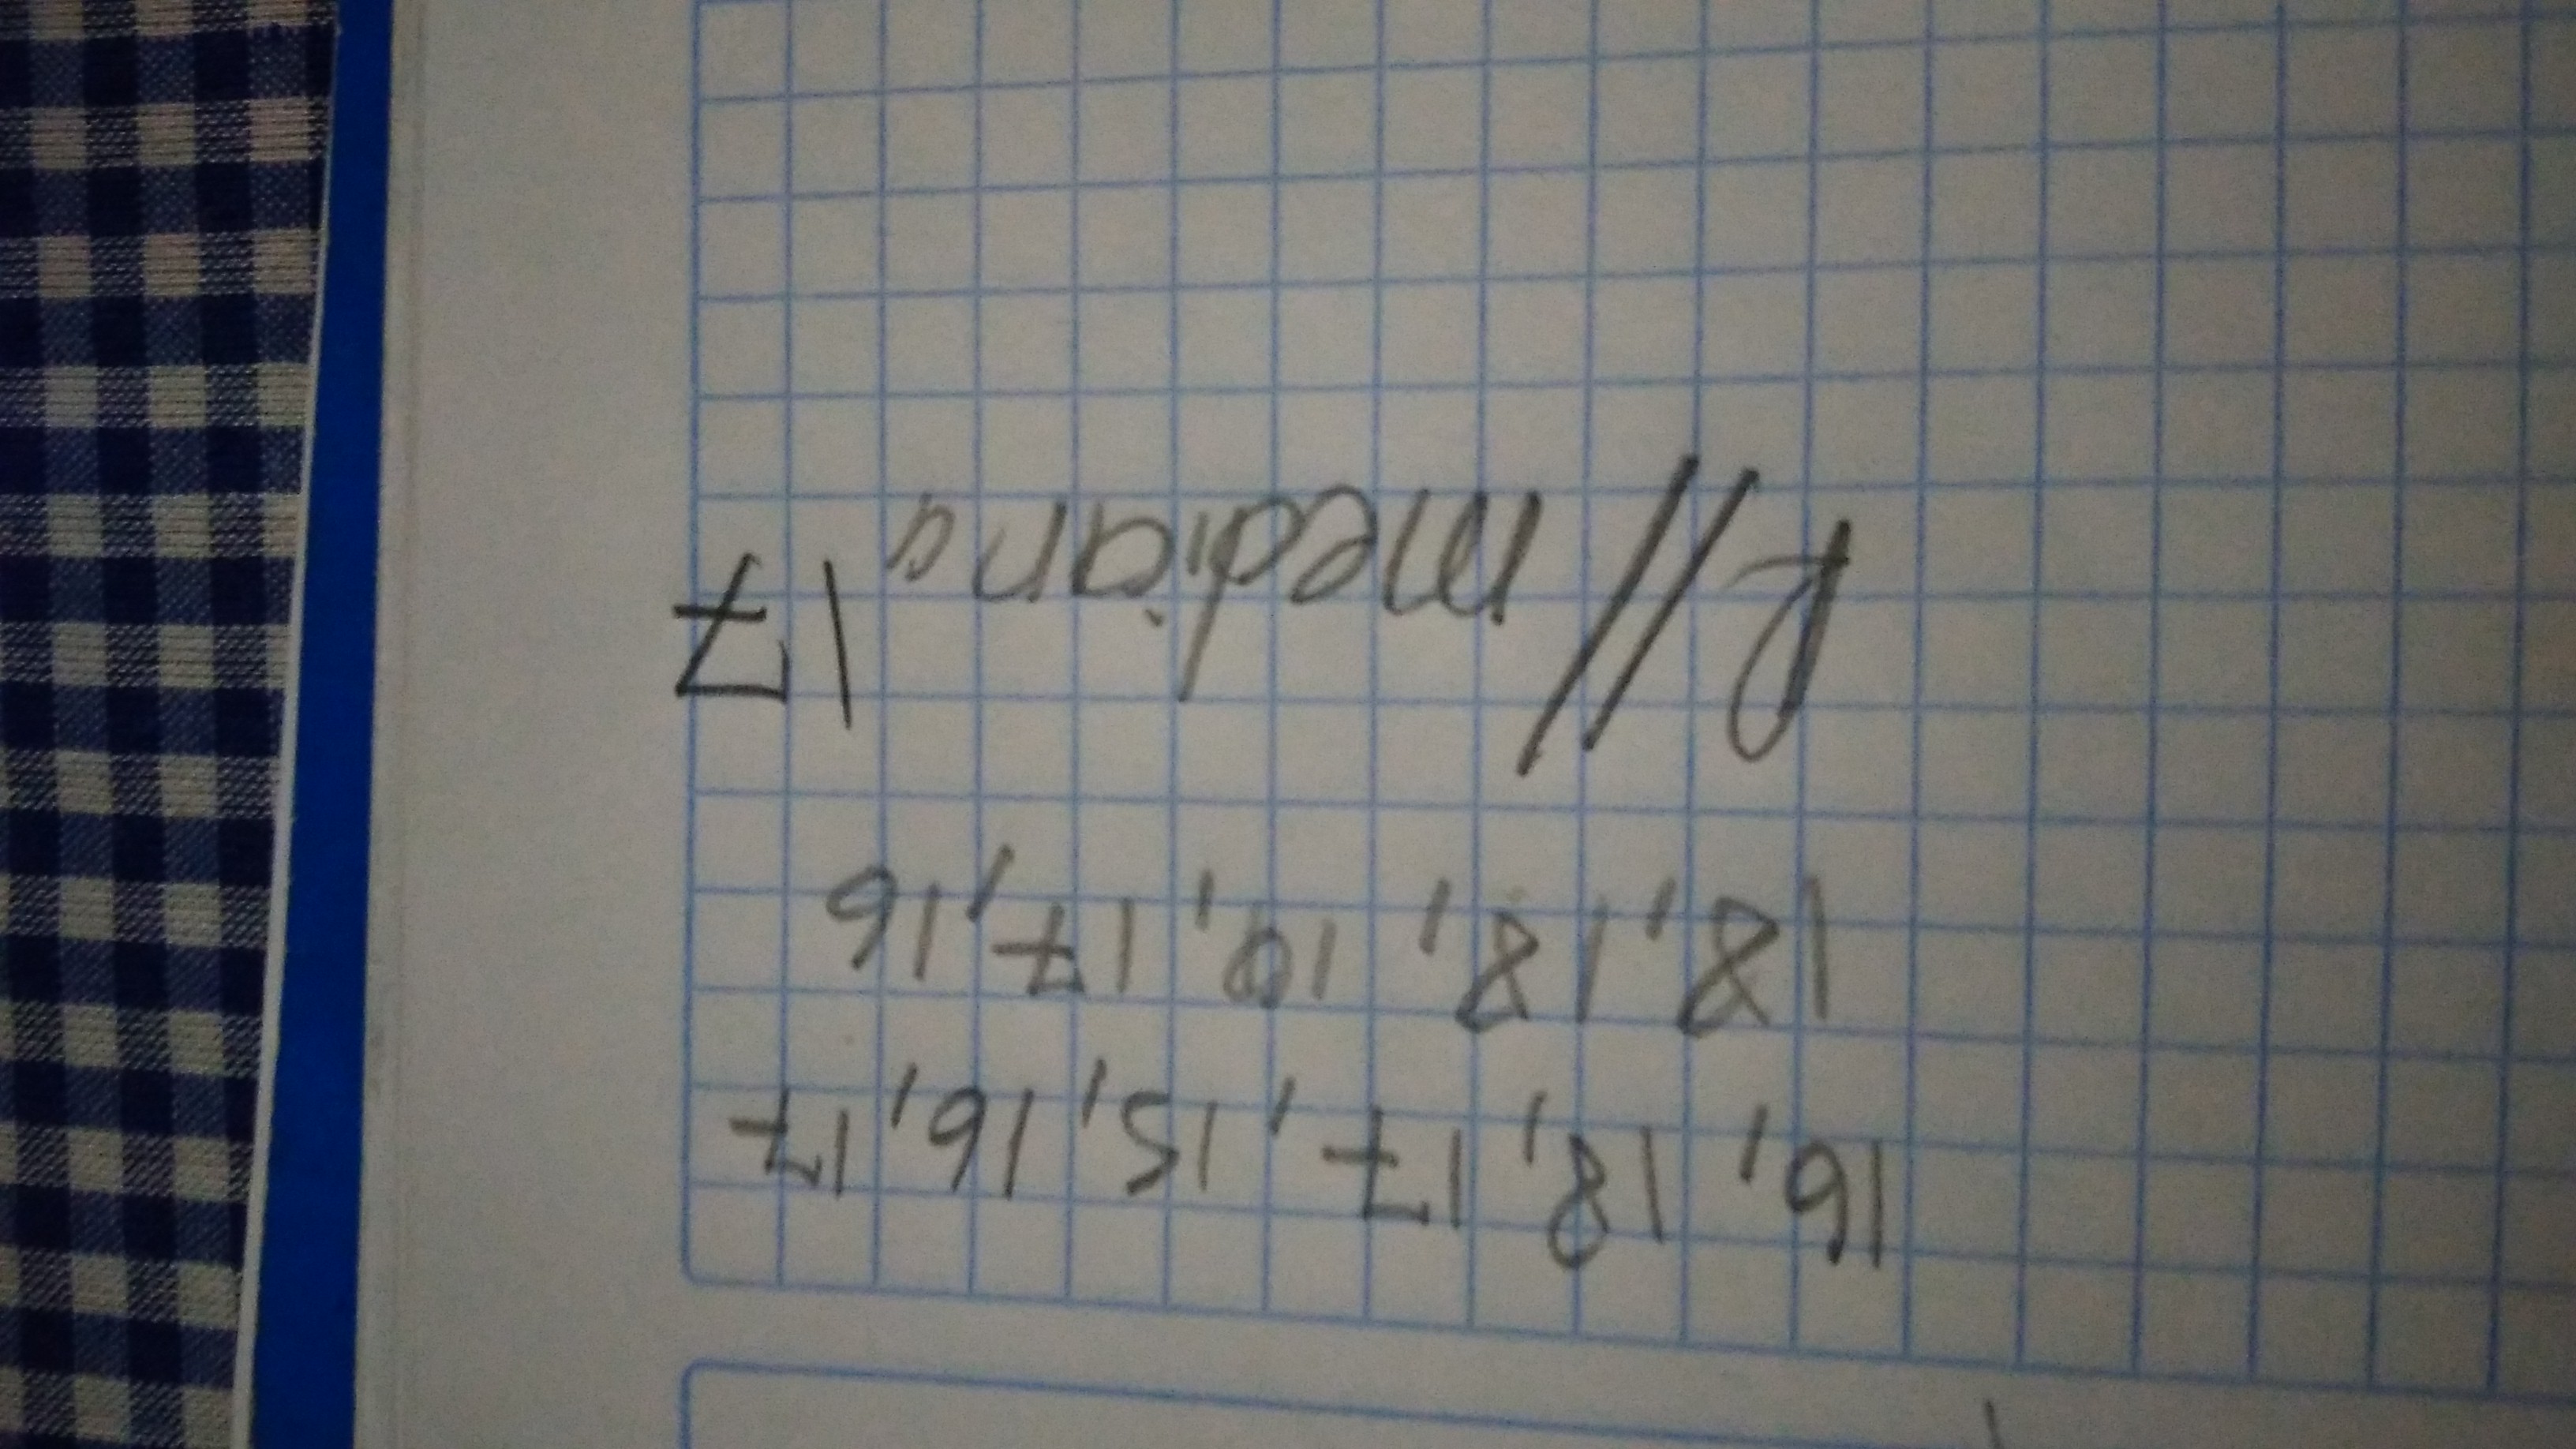 16, 18, 17, 15, 16, 17
18, 18, 19, 17, 16
R// mediana 17